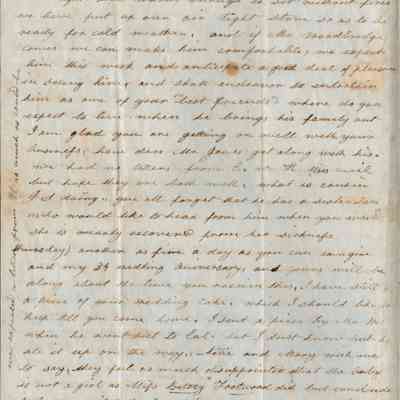 we have put up our air tight stove so as to be
ready for cold weather, and if Mr Woodbridge
comes we can make him comfortable, we expect
him this week and anticipate a good deal of pleasure
in seeing him, and shall endeavor to entertain
him as one of your best friends where do you
expect to live when he brings his family out
I am glad you are getting on well with your
business, how does Mr Jones get along with his
we had no letters from
but hope they are both well, what is cousin
doing, you all forget that he has a sister
who would like to hear from him when you
she is nearly recovered from her sickness
(Thursday) another as fine a day as you can imagine
and my 34 wedding aniversary, and yours will be
along about the time you receive this, I have still
a piece of your wedding cake, which I should like to
keep till you come home. I sent a piece by Mr
when he went out to but I dont know but he
ate it up on the way, and Mary wish me
to say, they feel as much disappointed that the
is not a girl as Miss Betsey Trotwood did but conclude